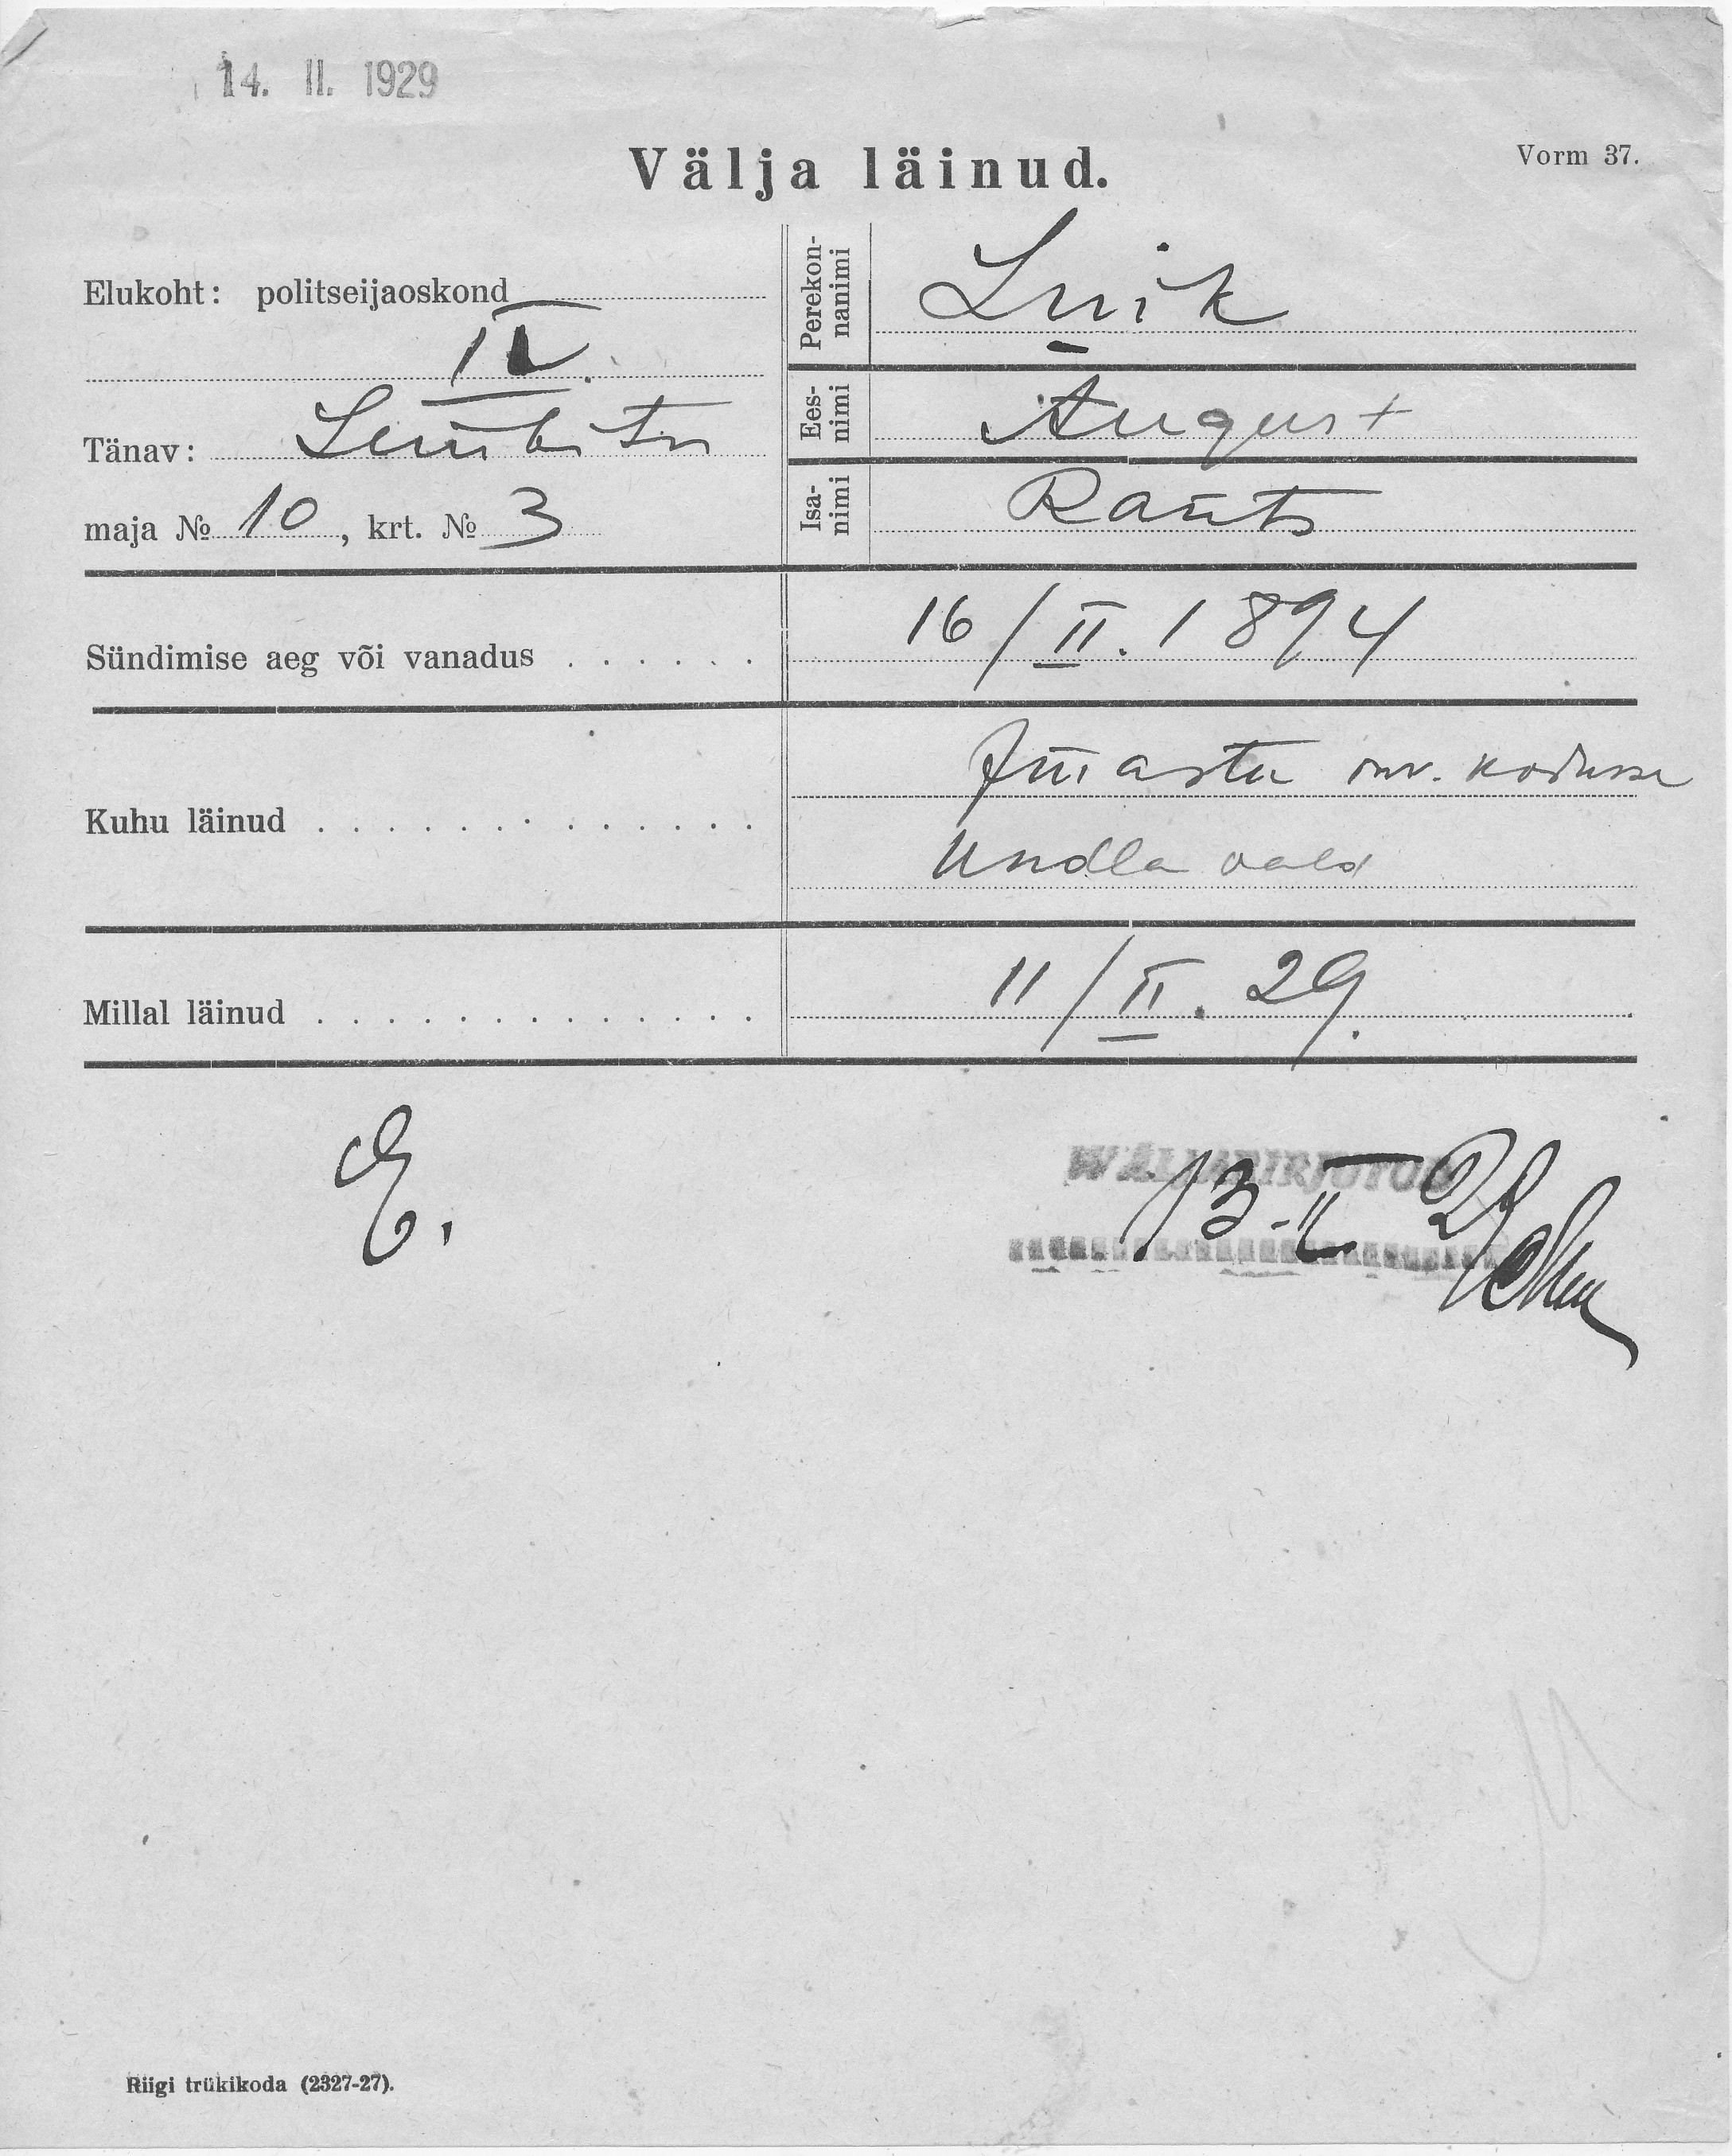 14. II. 1929
Välja läinud.
Vorm 37.
Elukoht: politseijaoskond
IV.
Tänav: Lembitu
maja № 10, krt. № 3
Perekon-
nanimi
Luik
Ees-
nimi
August
Isa-
nimi
Rants
Sündimise aeg või vanadus . . . . . .
16/II. 1894
Kuhu läinud . . . . . . . . . . . . .
inv. kodusse
Undla vald
Millal läinud . . . . . . . . . . . . .
11/II. 29.
E.
WÄLJAKIRJUTUD
13-II 29
Riigi trükikoda (2327-27).